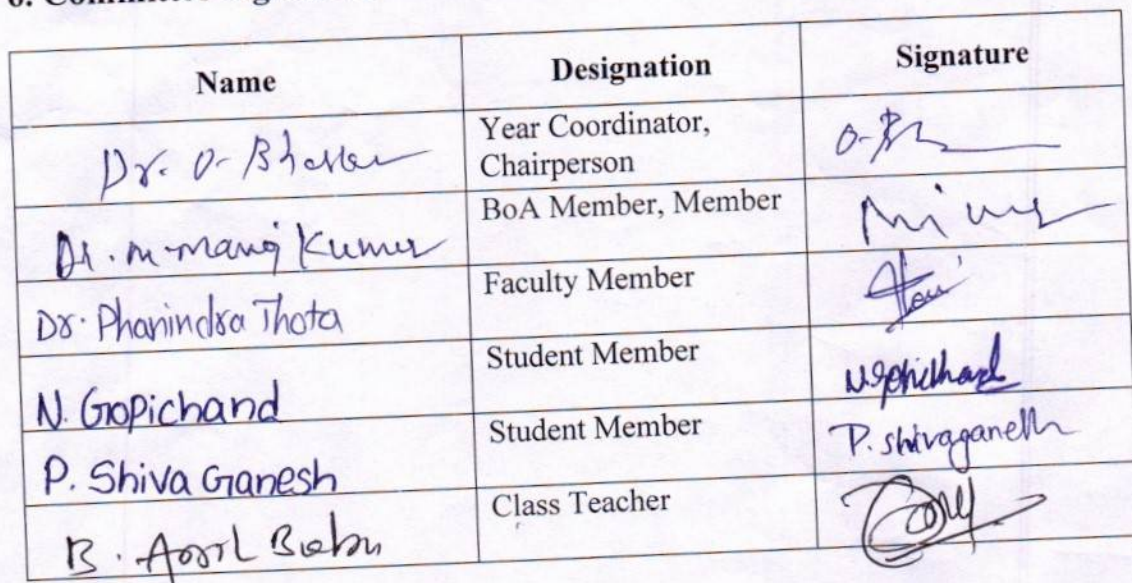 Name Designation Signature
Dr. O. Bhaskar Year Coordinator,
Chairperson
Dr. M. Manoj Kumar BoA Member, Member
Dr. Phanindra Thota Faculty Member
N. Gopichand Student Member N. Gopichand
P. Shiva Ganesh Student Member P. shivaganesh
B. Babu Class Teacher